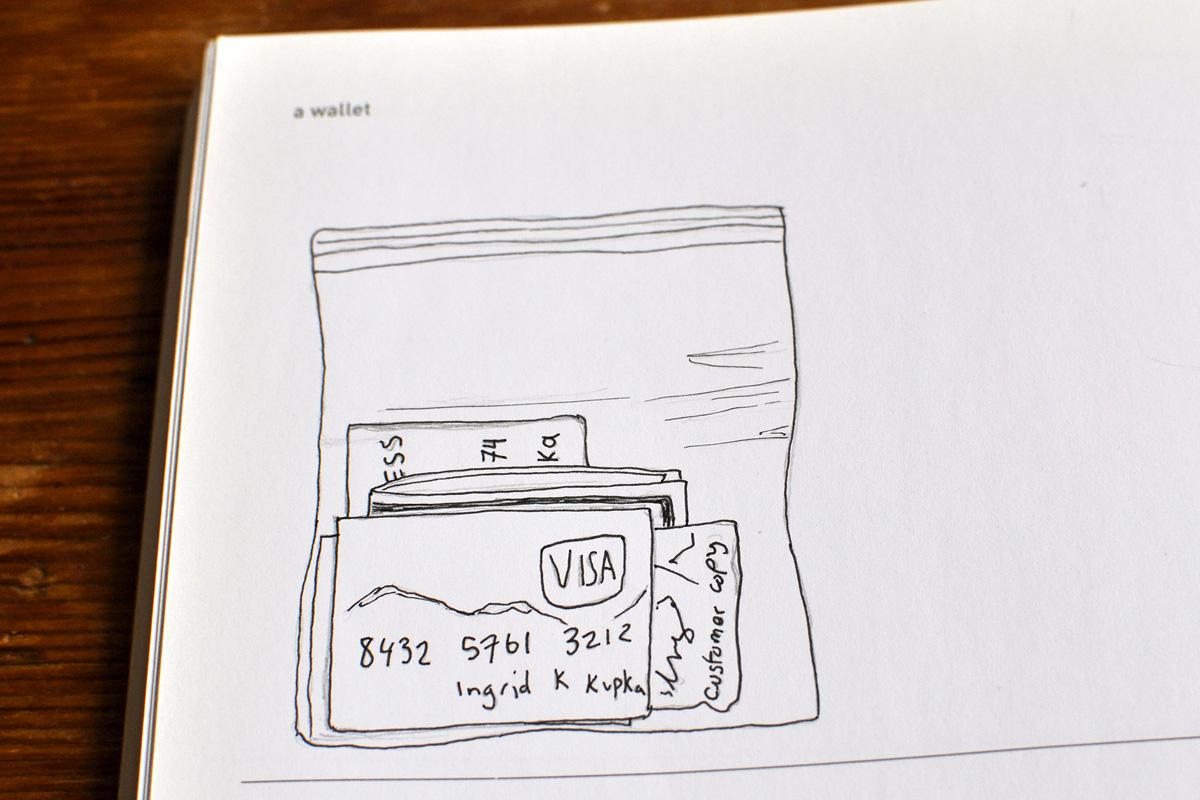 a wallet
ESS
74
Ka
VISA
8432 5761 3212
Ingrid K Kupka
Customer copy